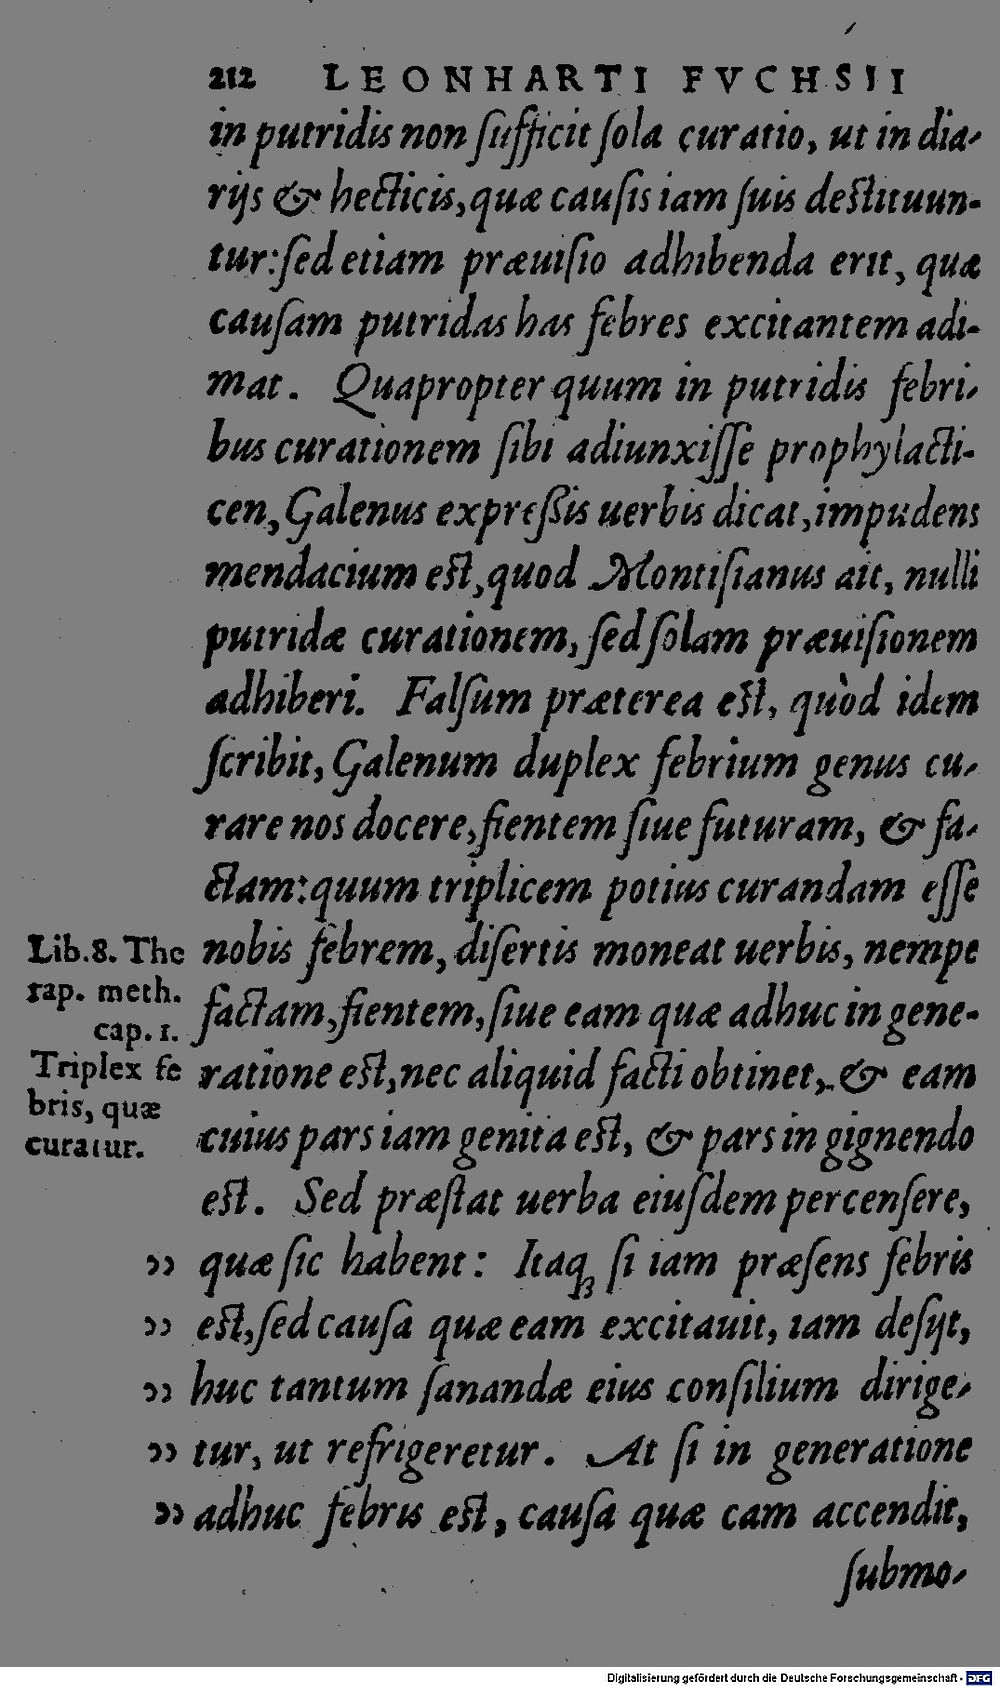 212 LEONHARTI FVCHSII
in putridis non ſufficit ſola curatio, ut in dia-
rijs & hecticis, quæ cauſis iam ſuis deſtituun-
tur: ſed etiam præuiſio adhibenda erit, quæ
cauſam putridas has febres excitantem adi-
mat. Quapropter quum in putridis febri-
bus curationem ſibi adiunxiſſe prophylacti-
cen, Galenus expreſsis uerbis dicat, impudens
mendacium eſt, quod Montiſianus ait, nulli
putridæ curationem, ſed ſolam præuiſionem
adhiberi. Falſum præterea eſt, quòd idem
ſcribit, Galenum duplex febrium genus cu-
rare nos docere, fientem ſiue futuram, & fa-
ctam: quum triplicem potius curandam eſſe
nobis febrem, diſertis moneat uerbis, nempe
factam, fientem, ſiue eam quæ adhuc in gene-
ratione eſt, nec aliquid facti obtinet, & eam
cuius pars iam genita eſt, & pars in gignendo
eſt. Sed præſtat uerba eiuſdem percenſere,
„ quæ ſic habent: Itaqꝫ ſi iam præſens febris
„ eſt, ſed cauſa quæ eam excitauit, iam deſijt,
„ huc tantum ſanandæ eius conſilium dirige-
„ tur, ut refrigeretur. At ſi in generatione
„ adhuc febris eſt, cauſa quæ eam accendit,
ſubmo-
Lib.8. The
rap. meth.
cap. 1.
Triplex fe
bris, quæ
curatur.
Digitalisierung gefördert durch die Deutsche Forschungsgemeinschaft - DFG